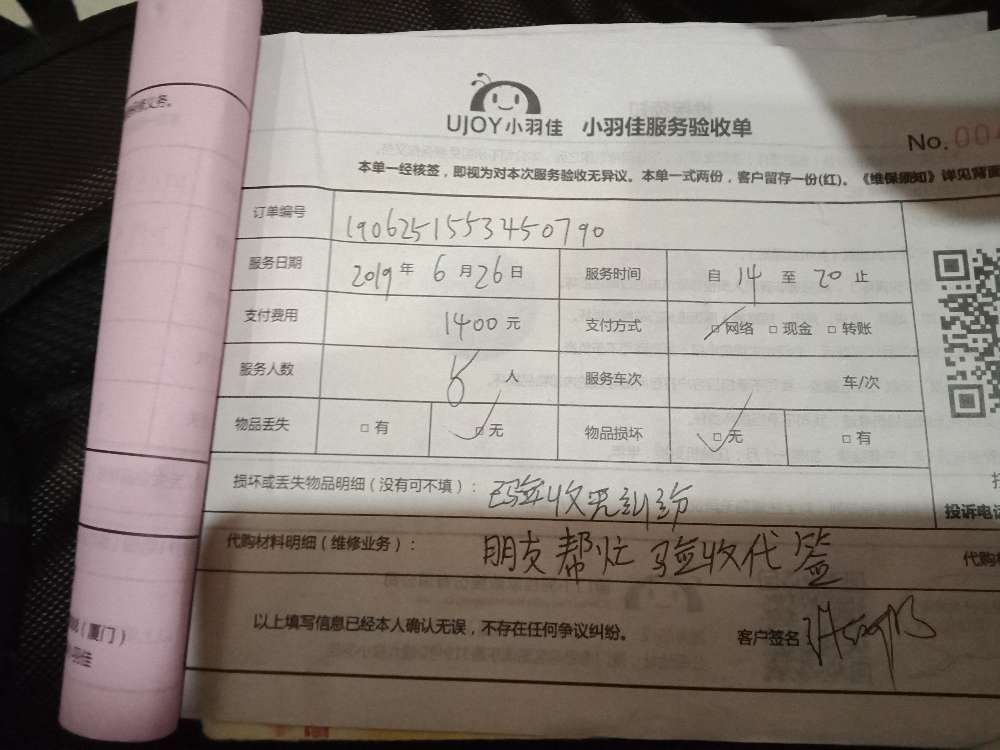 UJOY小羽佳 小羽佳服务验收单
No. 00
本单一经核签，即视为对本次服务验收无异议。本单一式两份，客户留存一份(红)。《维保须知》详见背面
订单编号 1906251553450790
服务日期 2019 年 6 月 26 日 服务时间 自 14 至 20 止
支付费用 1400 元 支付方式 □ 网络 □ 现金 □ 转账
服务人数 8 人 服务车次 车/次
物品丢失 □ 有 □ 无 物品损坏 □ 无 □ 有
损坏或丢失物品明细（没有可不填）： 已验收无纠纷
投诉电话
代购材料明细（维修业务）： 朋友帮忙验收代签
代购
以上填写信息已经本人确认无误，不存在任何争议纠纷。 客户签名
义务。
（厦门）
羽佳